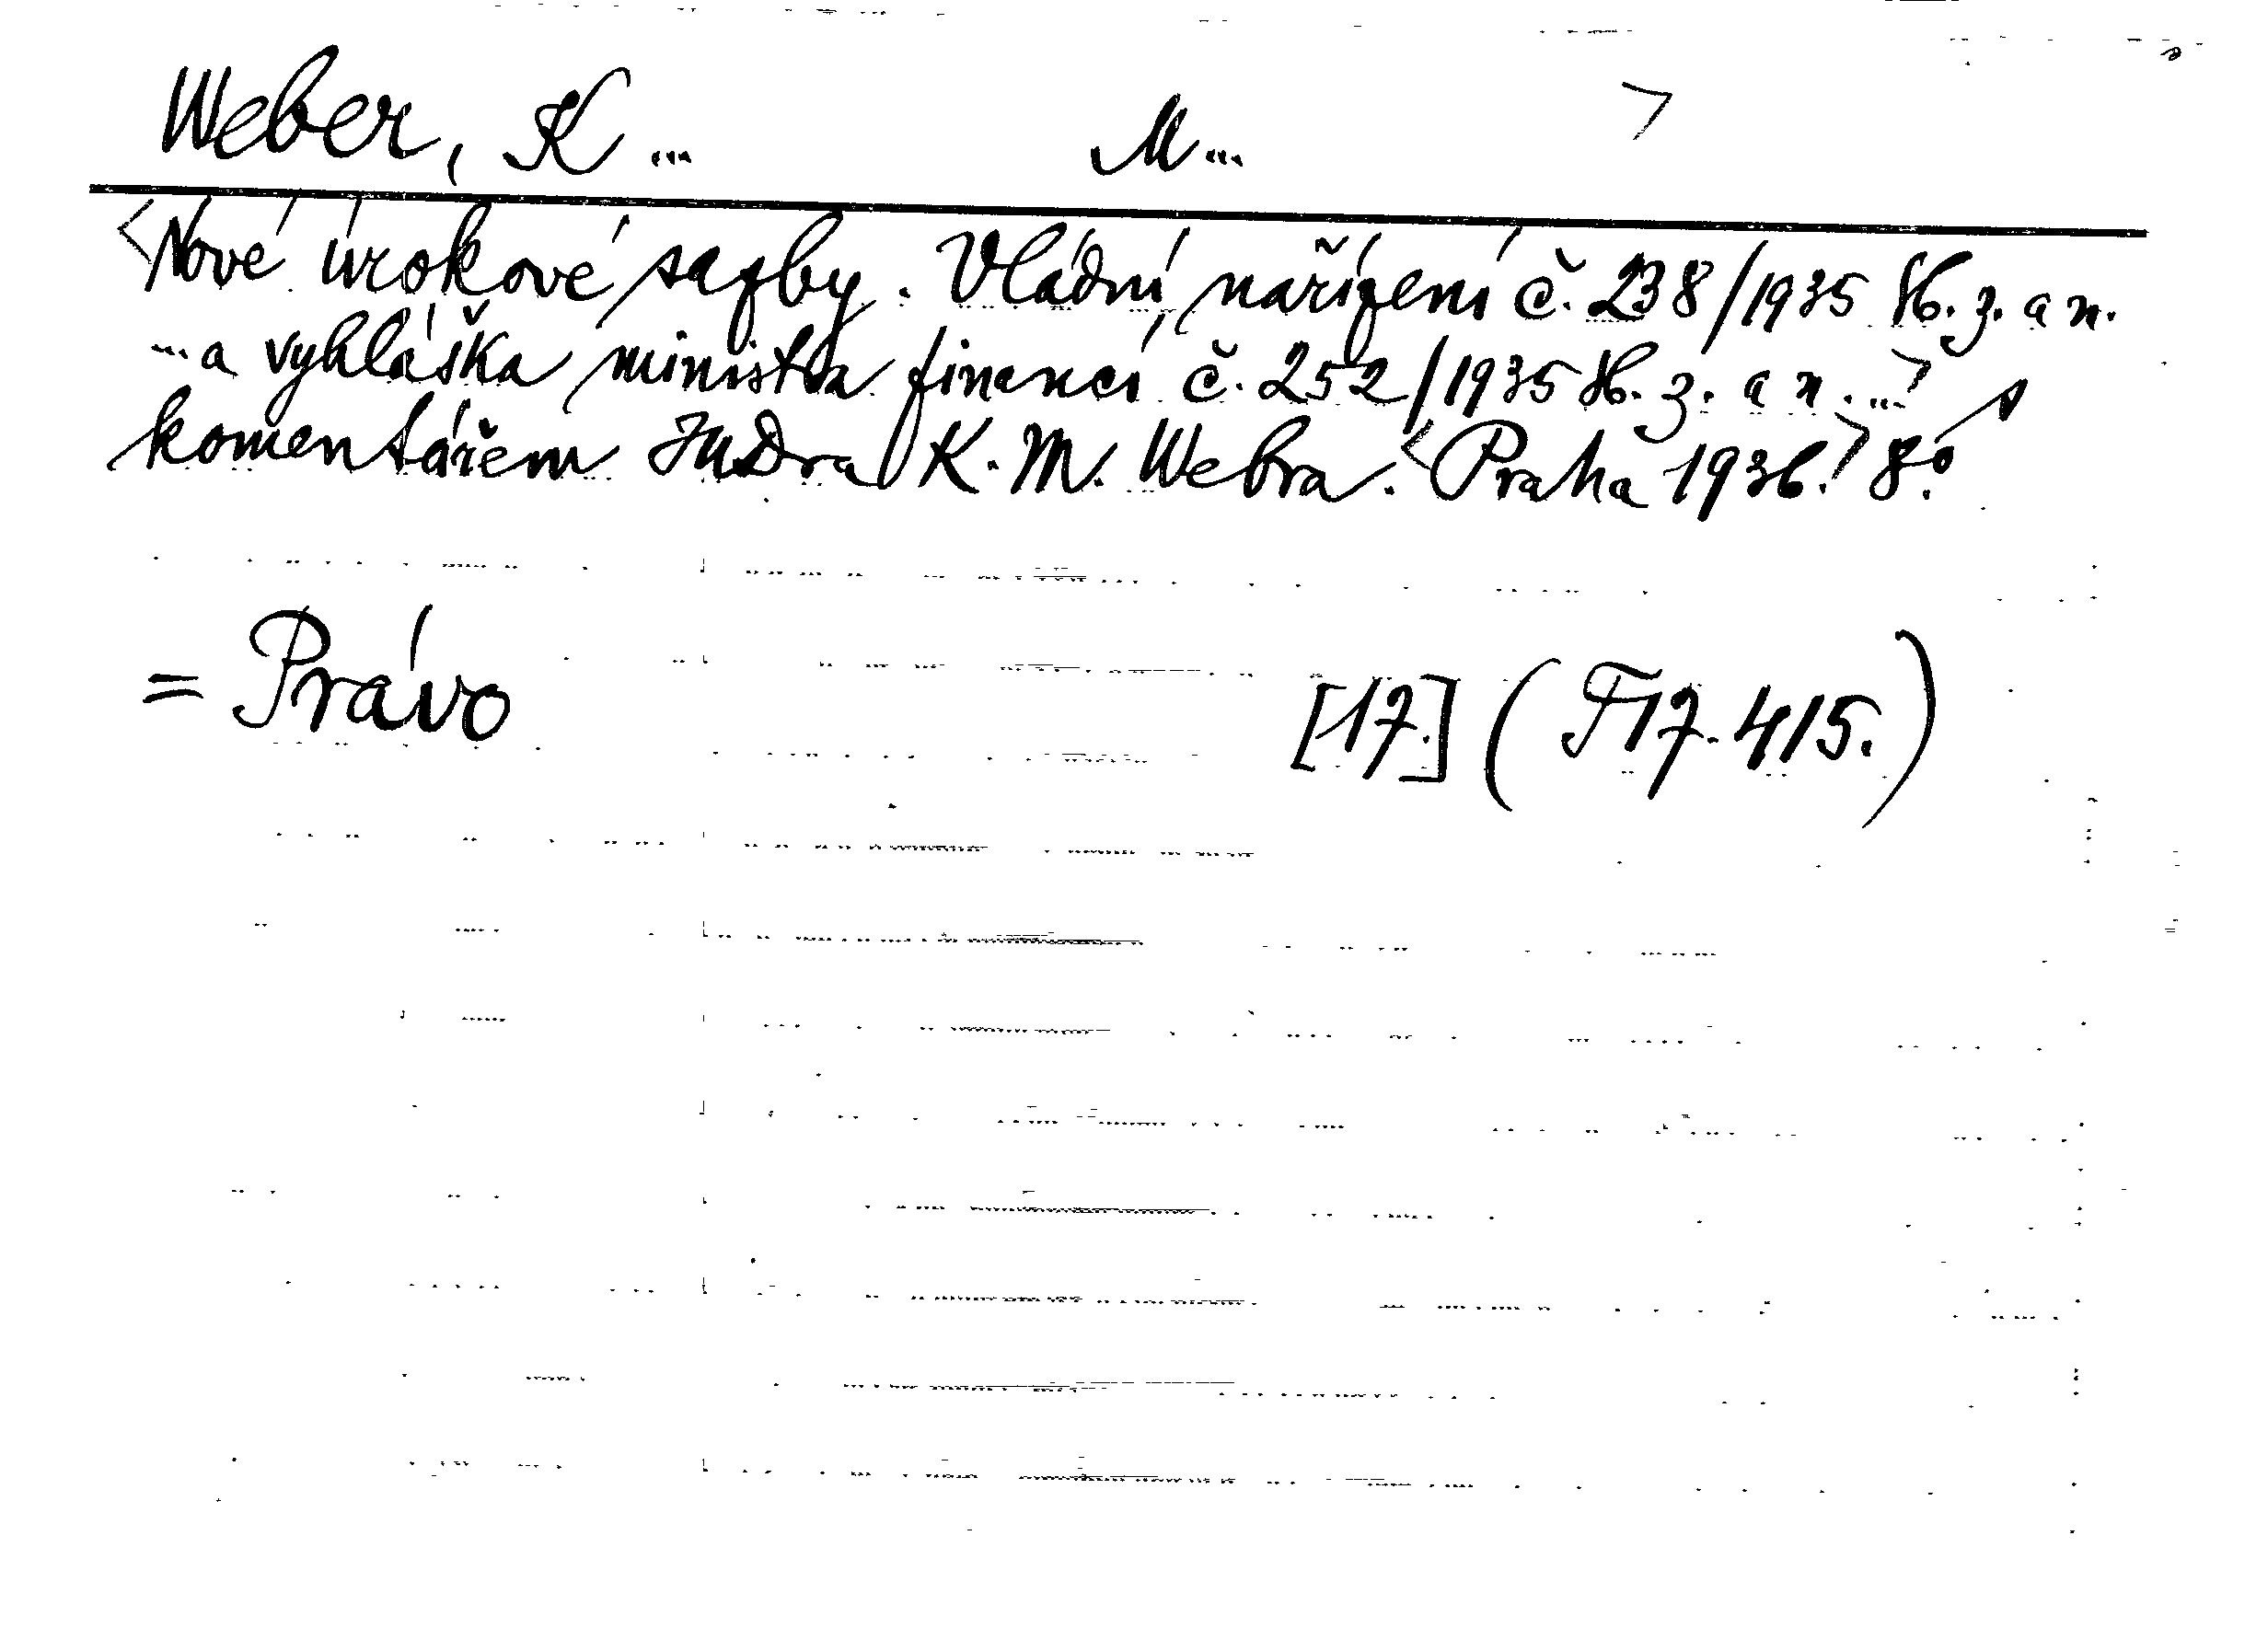 Weber, K... M... >
<Nové úrokové sazby. Vládní nařízení č. 238/1935 Sb. z. a n.
... a vyhláška ministra financí č. 252/1935 Sb. z. a n. ...> s
komentářem JUDra K. M. Webra. <Praha 1936.> 8.°
= Právo [17.] (F17.415.)